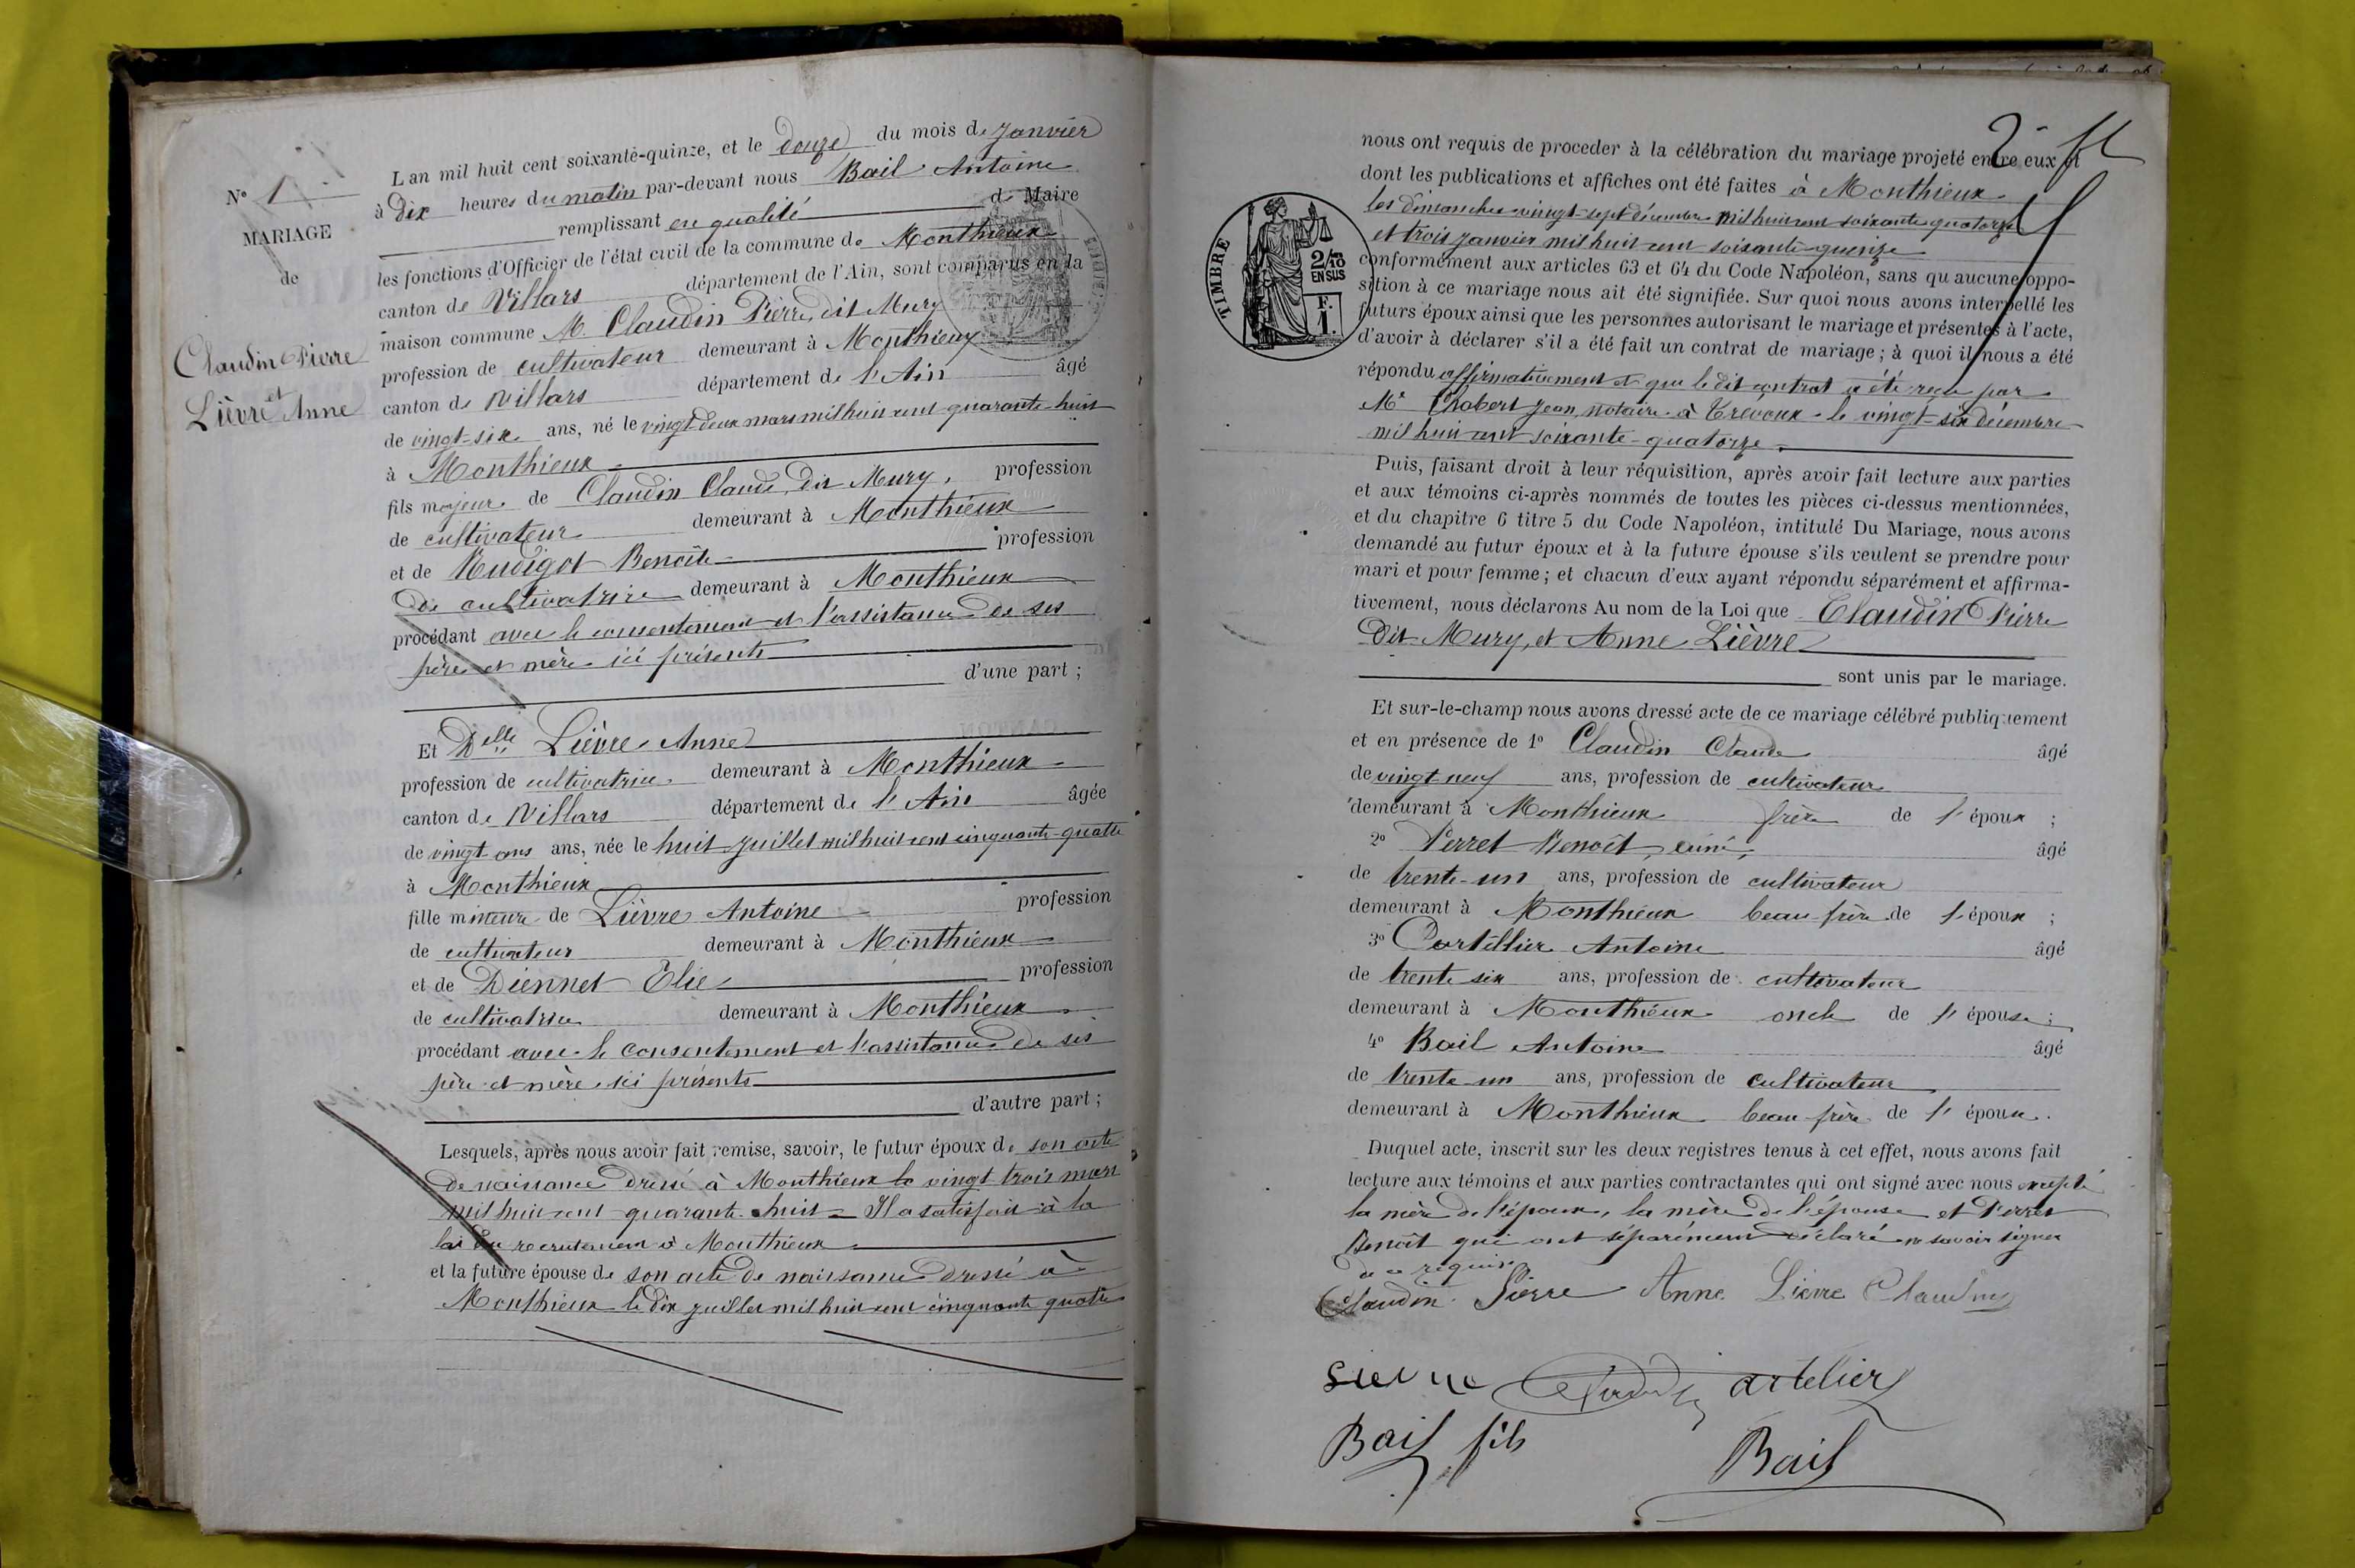 N° 1
MARIAGE
de
Claudin Pierre
et
Lièvre Anne
L an mil huit cent soixante-quinze, et le douze du mois de Janvier
à dix heures du matin par-devant nous Bail Antoine
remplissant en qualité de Maire
les fonctions d'Officier de l'état civil de la commune de Monthieux
canton de Villars département de l'Ain, sont comparus en la
maison commune M. Claudin Pierre, dit Mury
profession de cultivateur demeurant à Monthieux
canton de Villars département de l'Ain âgé
de vingt-six ans, né le vingt-deux mars mil huit cent quarante-huit
à Monthieux
fils majeur de Claudin Claude, dit Mury, profession
de cultivateur demeurant à Monthieux
et de Rudigot Benoîte profession
de cultivatrice demeurant à Monthieux
procédant avec le consentement et l'assistance de ses
père et mère ici présents
d'une part ;
Et Delle Lièvre Anne
profession de cultivatrice demeurant à Monthieux
canton de Villars département de l'Ain âgée
de vingt ans ans, née le huit Juillet mil huit cent cinquante-quatre
à Monthieux
fille mineure de Lièvre Antoine profession
de cultivateur demeurant à Monthieux
et de Diennet Elie profession
de cultivatrice demeurant à Monthieux
procédant avec le consentement et l'assistance de ses
père et mère ici présents
d'autre part ;
Lesquels, après nous avoir fait remise, savoir, le futur époux de son acte
de naissance dressé à Monthieux le vingt trois mars
mil huit cent quarante-huit. Il a satisfait à la
loi du recrutement à Monthieux
et la future épouse de son acte de naissance dressé à
Monthieux le dix juillet mil huit cent cinquante quatre
2
TIMBRE
2/10
EN SUS
F.
1.
nous ont requis de proceder à la célébration du mariage projeté entre eux et
dont les publications et affiches ont été faites à Monthieux
les dimanches vingt-sept décembre mil huit cent soixante quatorze
et trois janvier mil huit cent soixante-quinze
conformément aux articles 63 et 64 du Code Napoléon, sans qu aucune oppo-
sition à ce mariage nous ait été signifiée. Sur quoi nous avons interpellé les
futurs époux ainsi que les personnes autorisant le mariage et présentes à l'acte,
d'avoir à déclarer s'il a été fait un contrat de mariage ; à quoi il nous a été
répondu affirmativement et que le dit contrat a été reçu par
Me Chabert Jean, notaire à Trévoux le vingt-six décembre
mil huit cent soixante-quatorze.
Puis, faisant droit à leur réquisition, après avoir fait lecture aux parties
et aux témoins ci-après nommés de toutes les pièces ci-dessus mentionnées,
et du chapitre 6 titre 5 du Code Napoléon, intitulé Du Mariage, nous avons
demandé au futur époux et à la future épouse s'ils veulent se prendre pour
mari et pour femme ; et chacun d'eux ayant répondu séparément et affirma-
tivement, nous déclarons Au nom de la Loi que Claudin Pierre
dit Mury, et Anne Lièvre
sont unis par le mariage.
Et sur-le-champ nous avons dressé acte de ce mariage célébré publiquement
et en présence de 1° Claudin Claude âgé
de vingt neuf ans, profession de cultivateur
demeurant à Monthieux frère de l'époux ;
2° Perret Benoît, aîné, âgé
de trente-un ans, profession de cultivateur
demeurant à Monthieux beau-frère de l'époux ;
3° Cartellier Antoine âgé
de trente six ans, profession de cultivateur
demeurant à Monthieux oncle de l'épouse ;
4° Bail Antoine âgé
de trente-un ans, profession de cultivateur
demeurant à Monthieux beau-frère de l'époux.
Duquel acte, inscrit sur les deux registres tenus à cet effet, nous avons fait
lecture aux témoins et aux parties contractantes qui ont signé avec nous excepté
la mère de l'époux, la mère de l'épouse et Perret
Benoît qui ont séparément déclaré ne savoir signer
de ce requis.
Claudin Pierre Anne Lièvre Claudin
Lievre Claudin artelier
Bail fils Bail